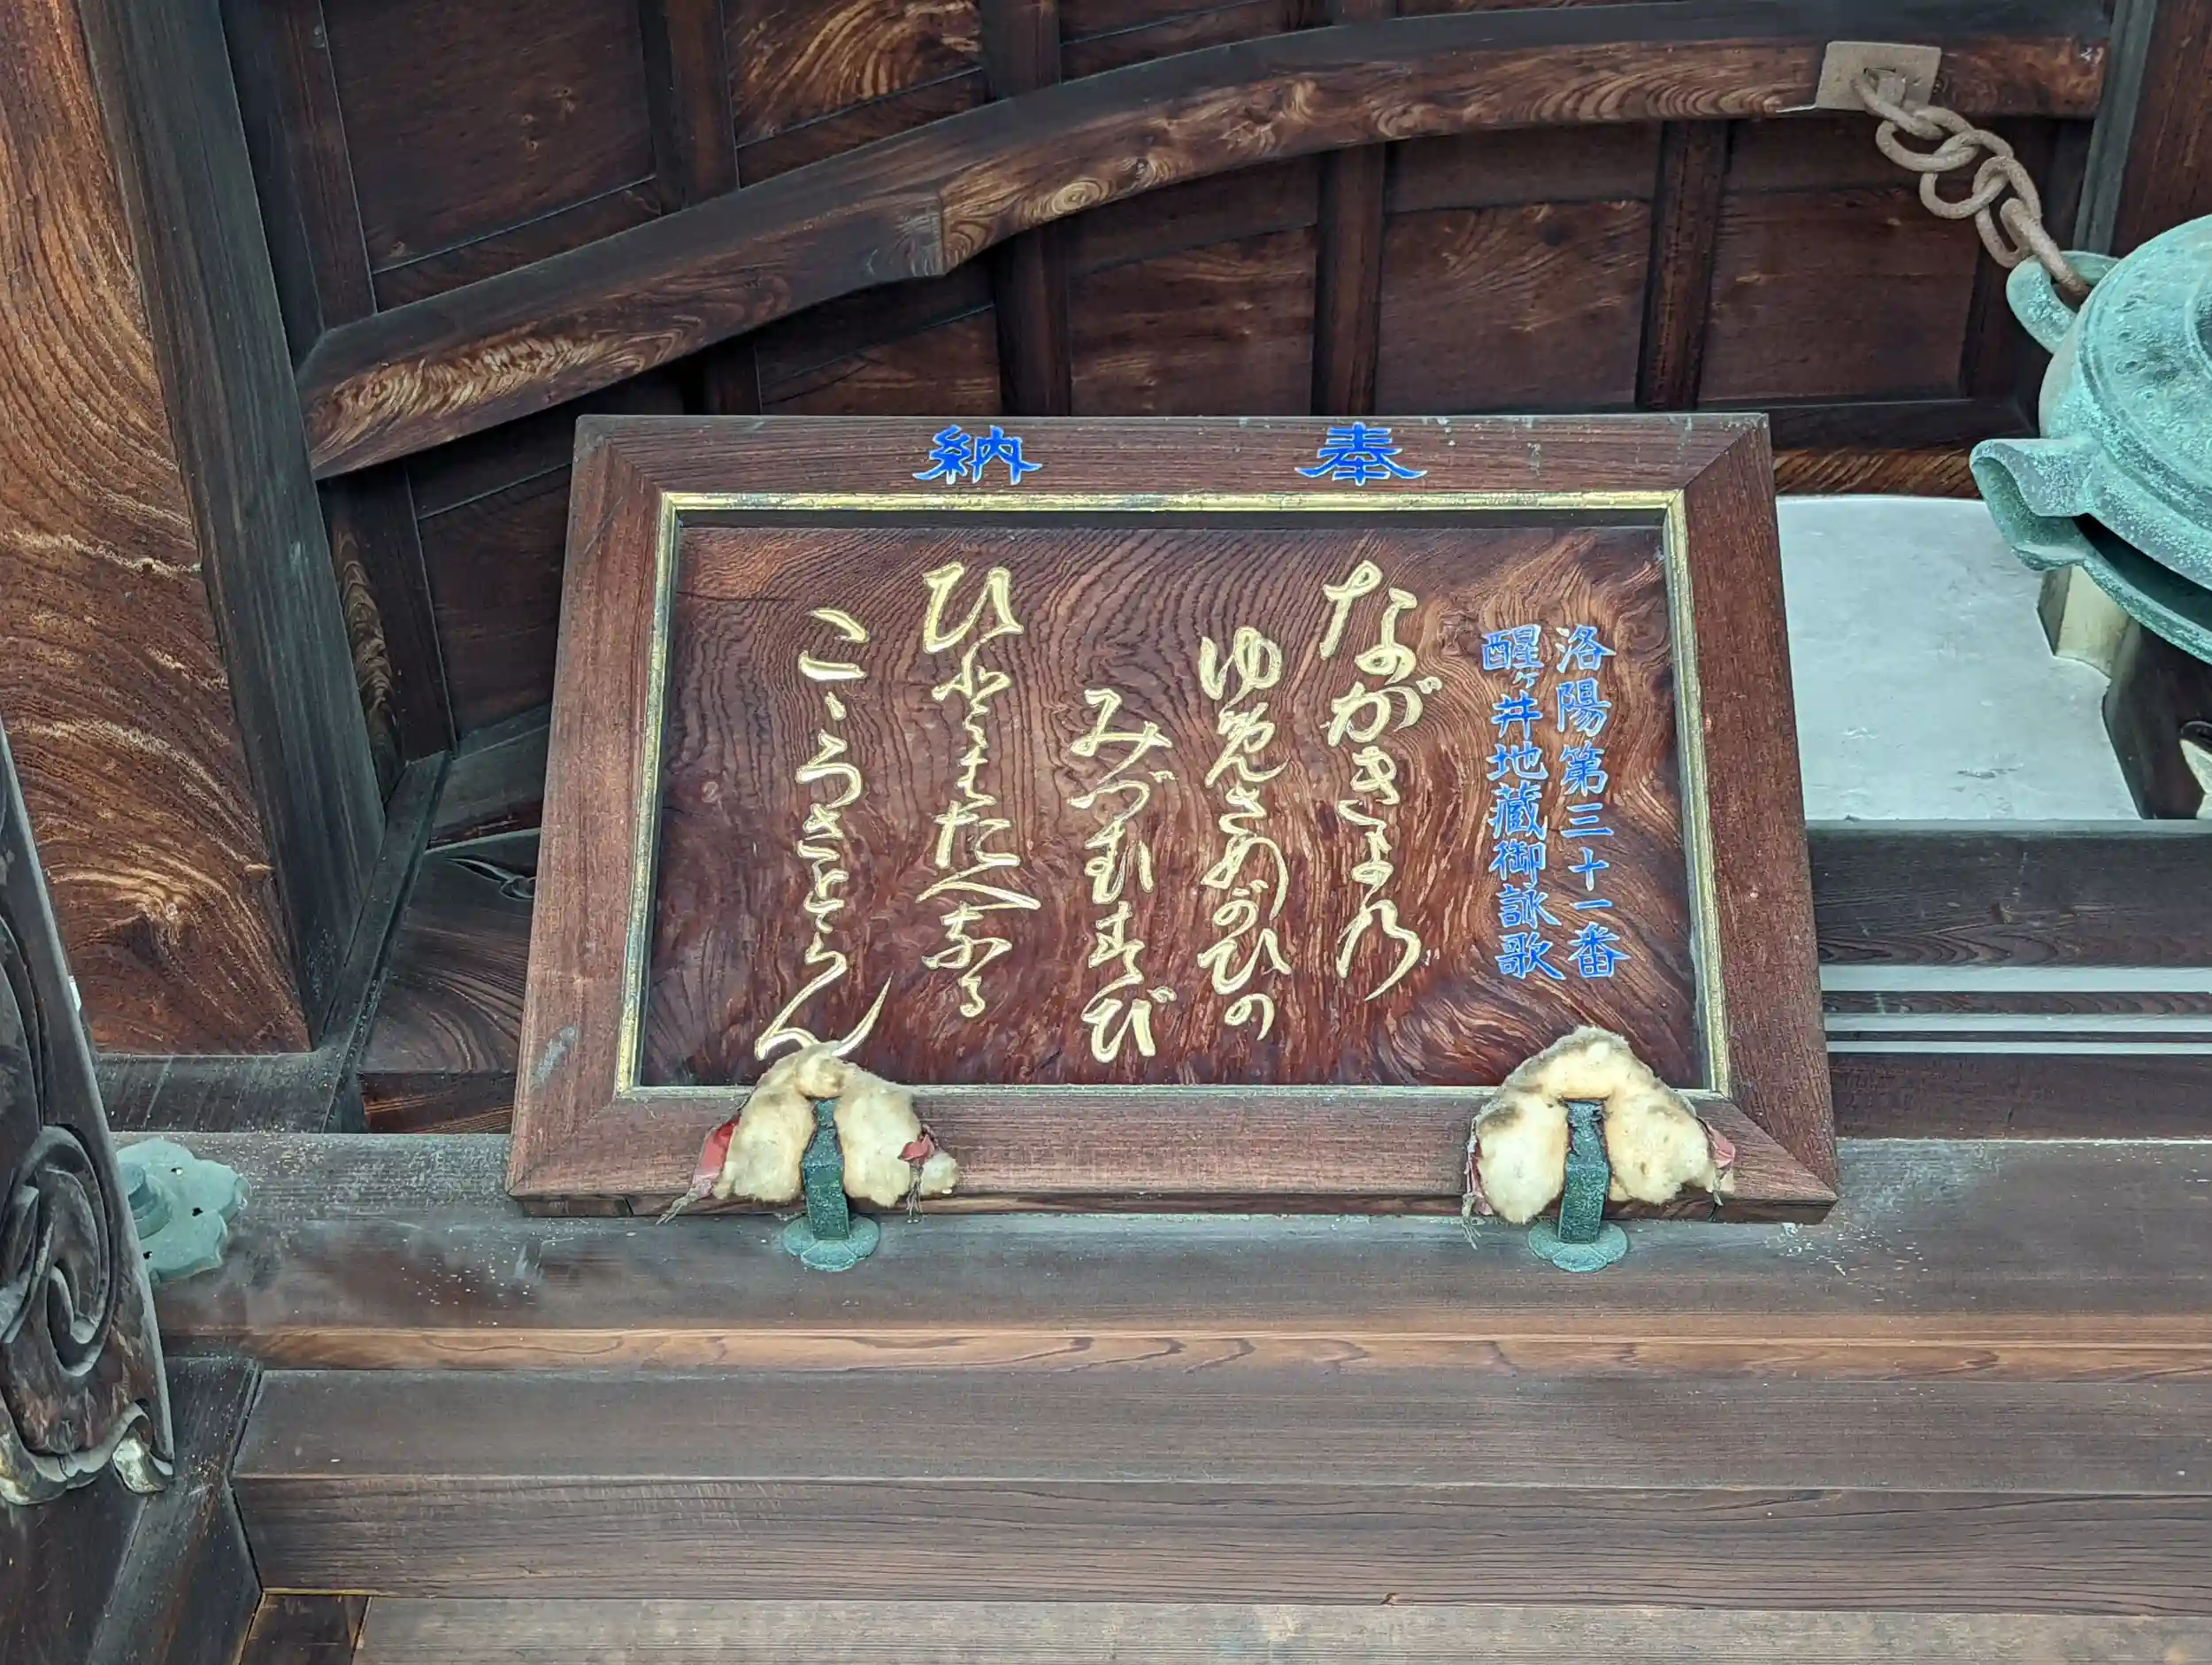 奉納
洛陽第三十一番
醒ヶ井地蔵御詠歌
ながきよの
ゆめさめがひの
みづむすび
ひともたへなる
こゝろさとらん